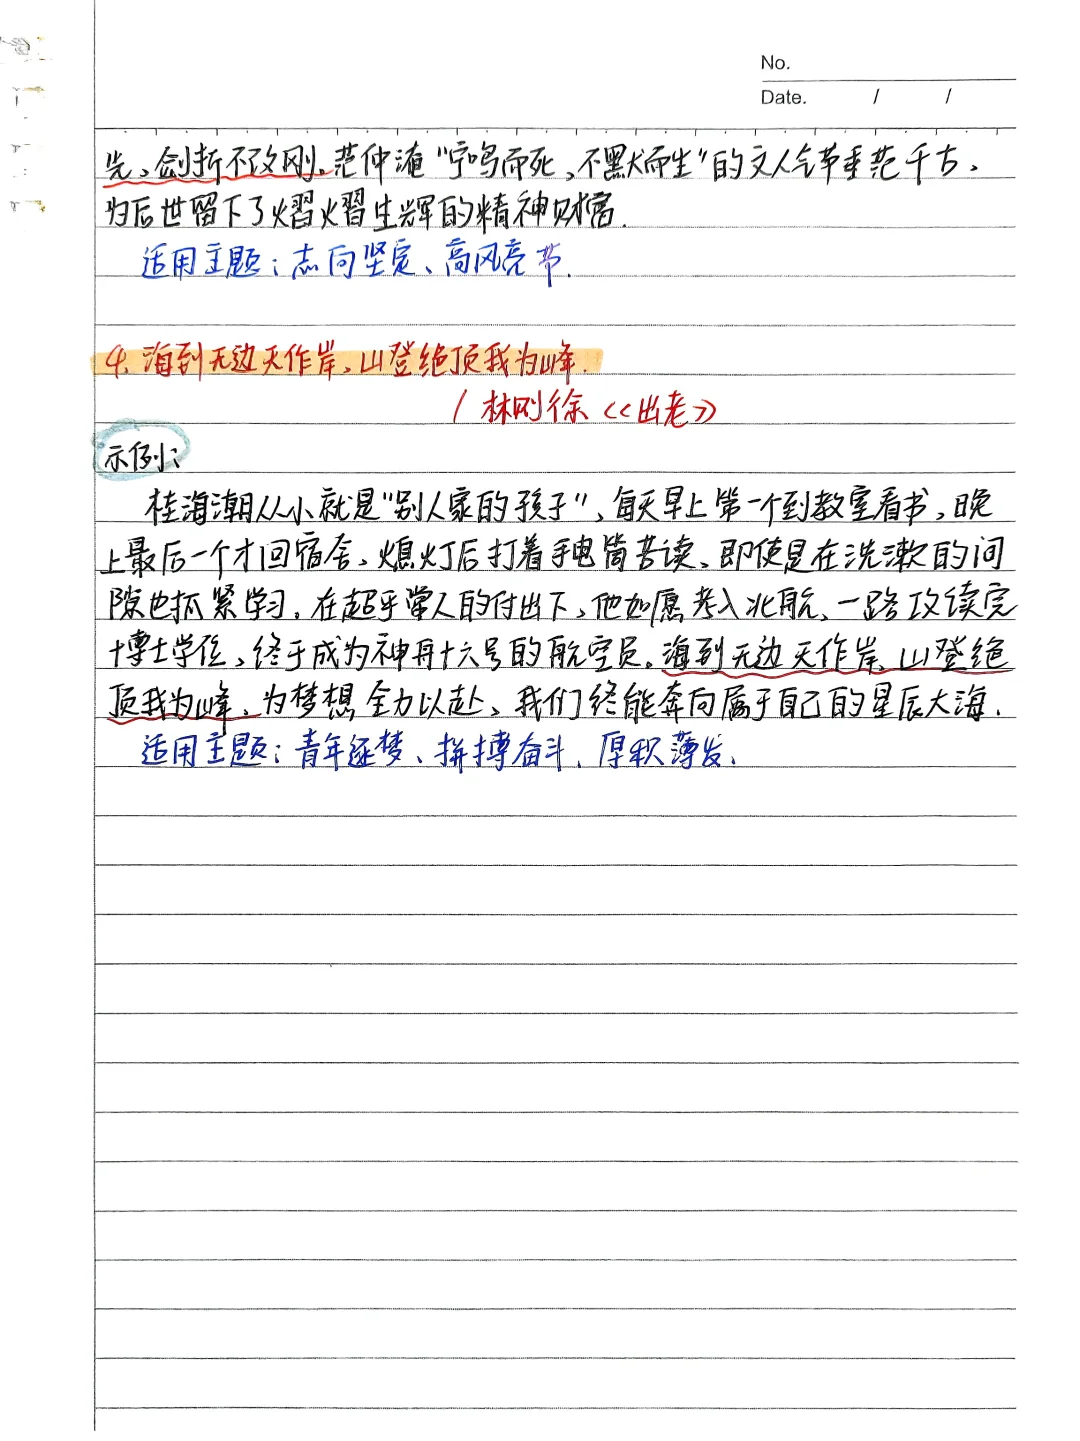 No.
Date. / /
光，剑折不改刚。范仲淹“宁鸣而死，不默而生”的文人气节垂范千古，
为后世留下了熠熠生辉的精神财富.
适用主题：志向坚定、高风亮节.
4. 海到无边天作岸，山登绝顶我为峰.
/ 林则徐《出老》
示例：
桂海潮从小就是“别人家的孩子”，每天早上第一个到教室看书，晚
上最后一个才回宿舍，熄灯后打着手电筒苦读、即使是在洗漱的间
隙也抓紧学习. 在超乎常人的付出下，他如愿考入北航、一路攻读完
博士学位，终于成为神舟十六号的航空员。海到无边天作岸，山登绝
顶我为峰，为梦想全力以赴，我们终能奔向属于自己的星辰大海.
适用主题：青年逐梦、拼搏奋斗、厚积薄发、